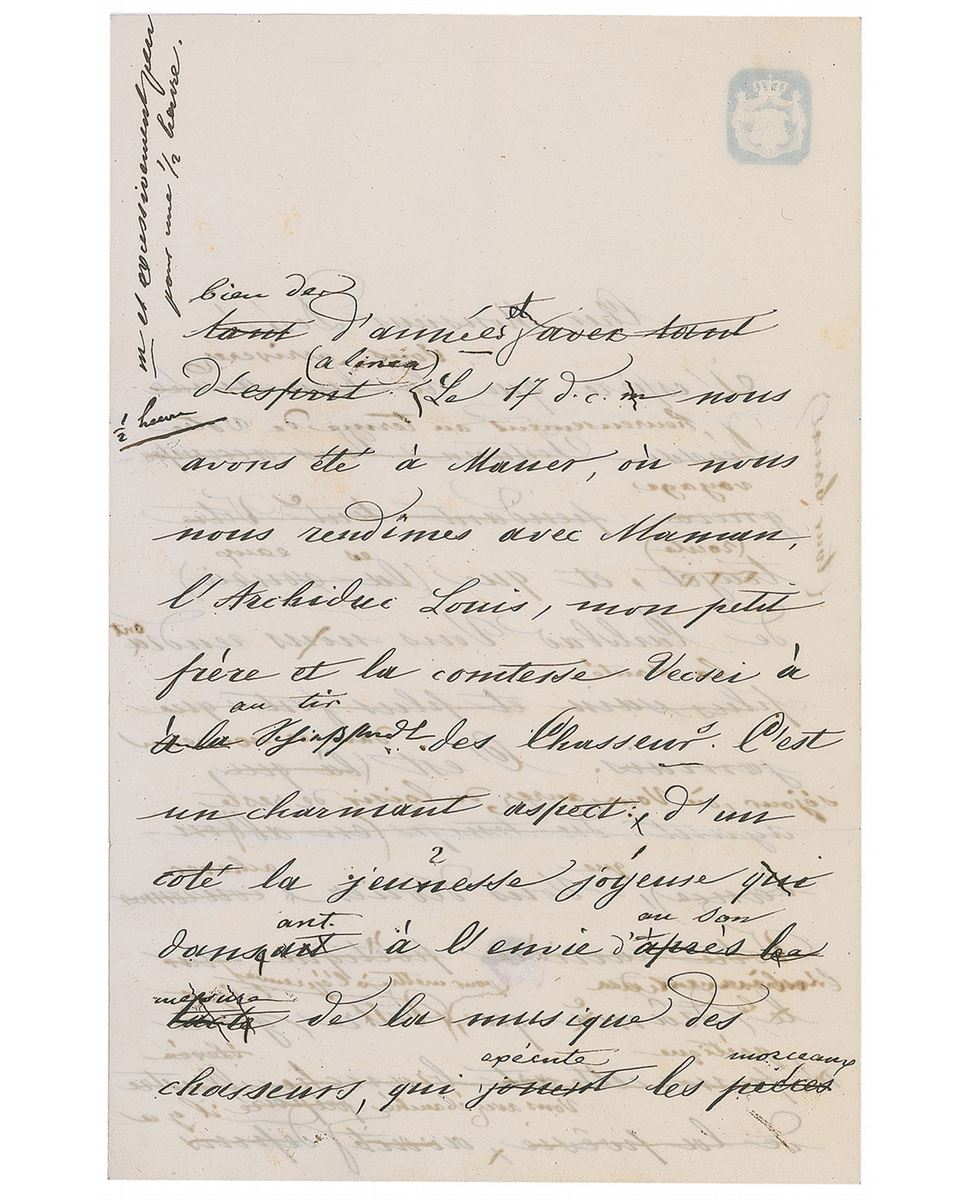 m et excessivement peu
pour une 1/2 heure.
bien des
tant d'années et avec tant
(a linea)
d'esprit. (Le 17 d. c. m nous
1/2 heure
avons été à Mauer, où nous
nous rendîmes avec Maman,
l'Archiduc Louis, mon petit
frère et la comtesse Vecsei à
au tir
à la Schießstadt des Chasseurs. C'est
un charmant aspect: d'un
coté la jeunesse joyeuse qui
ant.
dansait à l'envie d'après la
au son
mesure
de la musique des
exécute morceaux
chasseurs, qui jouent les pièces